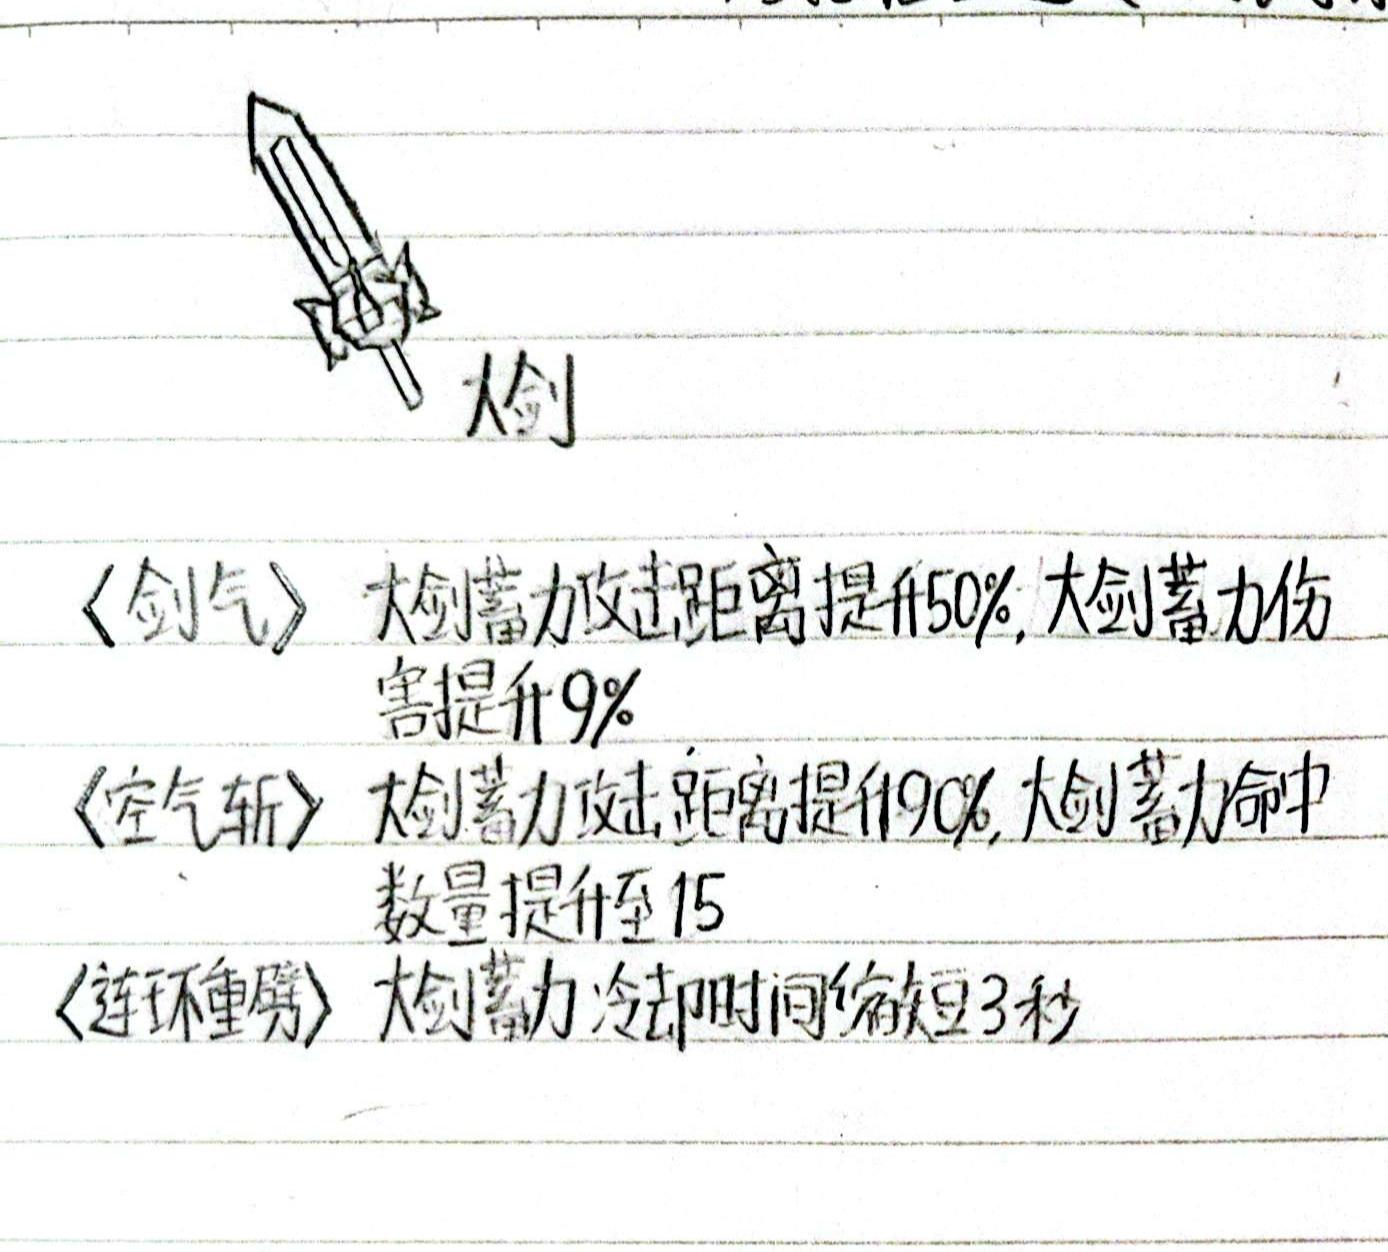 大剑
〈剑气〉 大剑蓄力攻击距离提升50%,大剑蓄力伤
害提升9%
〈空气斩〉 大剑蓄力攻击距离提升90%,大剑蓄力命中
数量提升至15
〈连环重劈〉 大剑蓄力冷却时间缩短3秒